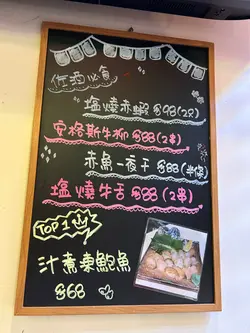 佐酒必食
塩燒赤蝦 $98(2只)
安格斯牛柳 $88(2串)
赤魚一夜干 $88(半條)
塩燒牛舌 $88(2串)
TOP 1
汁煮東鮑魚
$68